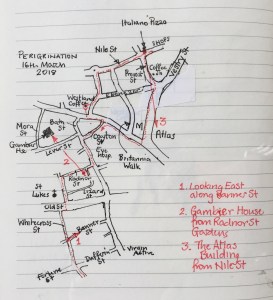 Italiano Pizza
PERIGRINATION
16th MARCH
2018
Nile St
SHOPS
Provost
St
Coffee
Vestry St
Westland
Coffee
Moru
St
Bath
St
Gambier
Hse
Lever St
Crayton
St
Eye
Hosp
M
3
Atlas
Britannia
Walk
2
Radnor
St
Lizard
St
St
Lukes
Old St
Whitecross
St
Banner
St
1
Dufferin
St
Virgin
Active
Fortune
St
1. Looking East
along Banner St
2. Gambier House
from Radnor St
Gardens
3. The Atlas
Building
from Nile St